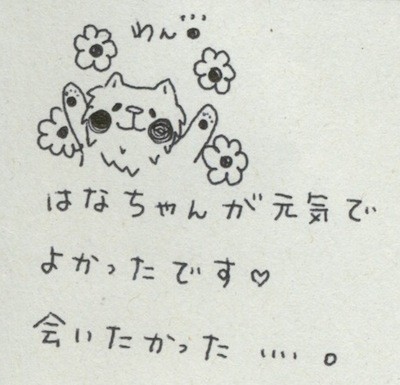 わん
はなちゃんが元気で
よかったです♡
会いたかった....。